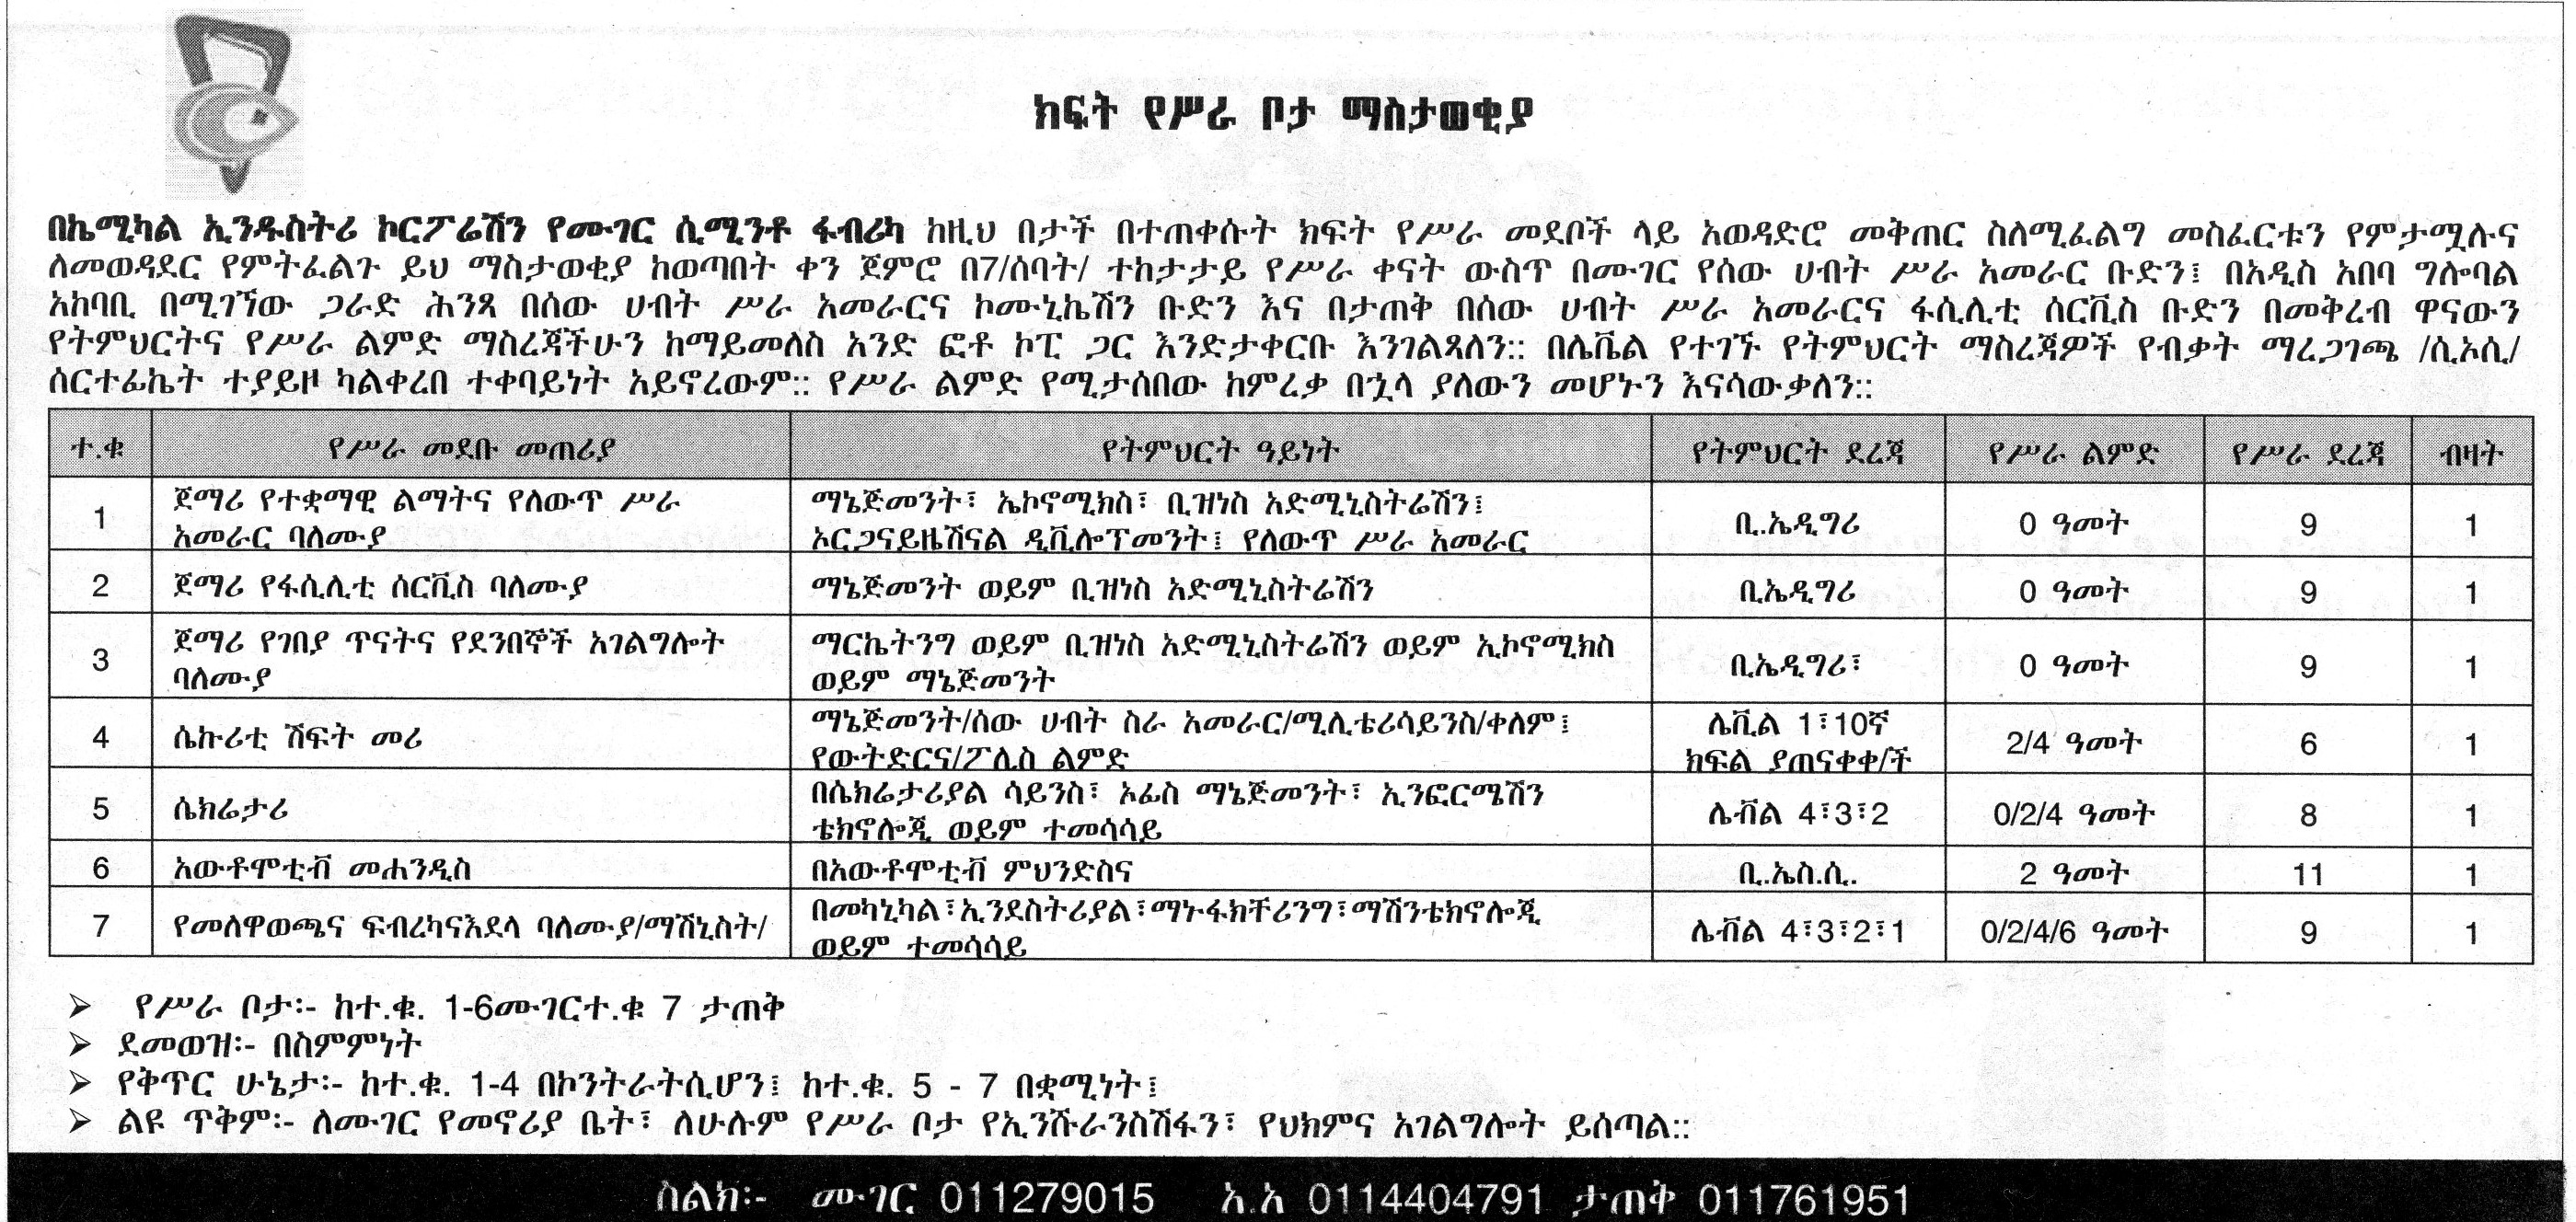 ክፍት የሥራ ቦታ ማስታወቂያ
በኬሚካል ኢንዱስትሪ ኮርፖሬሽን የሙገር ሲሚንቶ ፋብሪካ ከዚህ በታች በተጠቀሱት ክፍት የሥራ መደቦች ላይ አወዳድሮ መቅጠር ስለሚፈልግ መስፈርቱን የምታሟሉና
ለመወዳደር የምትፈልጉ ይህ ማስታወቂያ ከወጣበት ቀን ጀምሮ በ7/ሰባት/ ተከታታይ የሥራ ቀናት ውስጥ በሙገር የሰው ሀብት ሥራ አመራር ቡድን፤ በአዲስ አበባ ግሎባል
አከባቢ በሚገኘው ጋራድ ሕንጻ በሰው ሀብት ሥራ አመራርና ኮሙኒኬሽን ቡድን እና በታጠቅ በሰው ሀብት ሥራ አመራርና ፋሲሊቲ ሰርቪስ ቡድን በመቅረብ ዋናውን
የትምህርትና የሥራ ልምድ ማስረጃችሁን ከማይመለስ አንድ ፎቶ ኮፒ ጋር እንድታቀርቡ እንገልጻለን፡፡ በሌቬል የተገኙ የትምህርት ማስረጃዎች የብቃት ማረጋገጫ /ሲኦሲ/
ሰርተፊኬት ተያይዞ ካልቀረበ ተቀባይነት አይኖረውም፡፡ የሥራ ልምድ የሚታሰበው ከምረቃ በኋላ ያለውን መሆኑን እናሳውቃለን፡፡
ተ.ቁ የሥራ መደቡ መጠሪያ የትምህርት ዓይነት የትምህርት ደረጃ የሥራ ልምድ የሥራ ደረጃ ብዛት
1 ጀማሪ የተቋማዊ ልማትና የለውጥ ሥራ አመራር ባለሙያ ማኔጅመንት፣ ኤኮኖሚክስ፣ ቢዝነስ አድሚኒስትሬሽን፤ ኦርጋናይዜሽናል ዲቪሎፕመንት፤ የለውጥ ሥራ አመራር ቢ..ኤዲግሪ 0 ዓመት 9 1
2 ጀማሪ የፋሲሊቲ ሰርቪስ ባለሙያ ማኔጅመንት ወይም ቢዝነስ አድሚኒስትሬሽን ቢኤዲግሪ 0 ዓመት 9 1
3 ጀማሪ የገበያ ጥናትና የደንበኞች አገልግሎት ባለሙያ ማርኬትንግ ወይም ቢዝነስ አድሚኒስትሬሽን ወይም ኢኮኖሚክስ ወይም ማኔጅመንት ቢኤዲግሪ፣ 0 ዓመት 9 1
4 ሴኩሪቲ ሽፍት መሪ ማኔጅመንት/ሰው ሀብት ስራ አመራር/ሚሊቴሪሳይንስ/ቀለም፤ የውትድርና/ፖሊስ ልምድ ሌቪል 1፣10ኛ ክፍል ያጠናቀቀ/ች 2/4 ዓመት 6 1
5 ሴክሬታሪ በሴክሬታሪያል ሳይንስ፣ ኦፊስ ማኔጅመንት፣ ኢንፎርሜሽን ቴክኖሎጂ ወይም ተመሳሳይ ሌቭል 4፣3፣2 0/2/4 ዓመት 8 1
6 አውቶሞቲቭ መሐንዲስ በአውቶሞቲቭ ምህንድስና ቢ.ኤስ.ሲ. 2 ዓመት 11 1
7 የመለዋወጫና ፍብረካናእደላ ባለሙያ/ማሽኒስት/ በመካኒካል፣ኢንደስትሪያል፣ማኑፋክቸሪንግ፣ማሽንቴክኖሎጂ ወይም ተመሳሳይ ሌቭል 4፣3፣2፣1 0/2/4/6 ዓመት 9 1
➢ የሥራ ቦታ፡- ከተ.ቁ. 1-6ሙገርተ.ቁ 7 ታጠቅ
➢ ደመወዝ፡- በስምምነት
➢ የቅጥር ሁኔታ፡- ከተ.ቁ. 1-4 በኮንትራትሲሆን፤ ከተ.ቁ. 5 - 7 በቋሚነት፤
➢ ልዩ ጥቅም፡- ለሙገር የመኖሪያ ቤት፣ ለሁሉም የሥራ ቦታ የኢንሹራንስሽፋን፣ የህክምና አገልግሎት ይሰጣል፡፡
ስልክ፡- ሙገር 011279015 አ.አ 0114404791 ታጠቅ 011761951